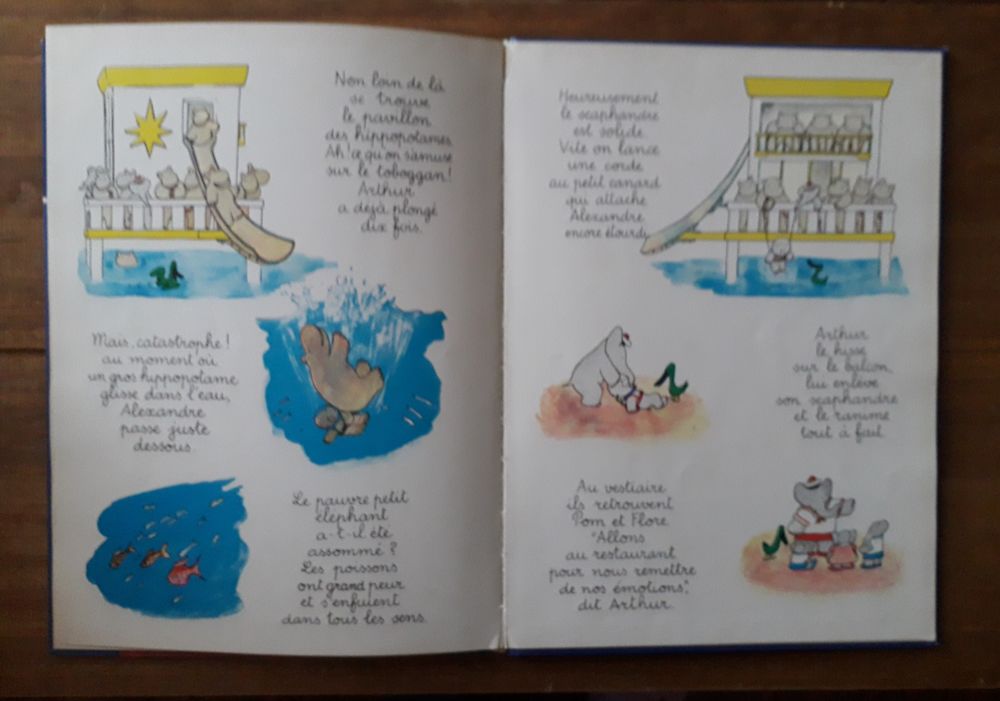 Non loin de là
se trouve
le pavillon
des hippopotames.
Ah! ce qu'on s'amuse
sur le toboggan!
Arthur
a déjà plongé
dix fois.
Mais, catastrophe!
au moment où
un gros hippopotame
glisse dans l'eau,
Alexandre
passe juste
dessous.
Le pauvre petit
éléphant
a-t-il été
assommé?
Les poissons
ont grand peur
et s'enfuient
dans tous les sens.
Heureusement
le scaphandre
est solide.
Vite on lance
une corde
au petit canard
qui attache
Alexandre
encore étourdi.
Arthur
le hisse
sur le balcon,
lui enlève
son scaphandre
et le ranime
tout à fait.
Au vestiaire
ils retrouvent
Pom et Flore.
"Allons
au restaurant
pour nous remettre
de nos émotions",
dit Arthur.